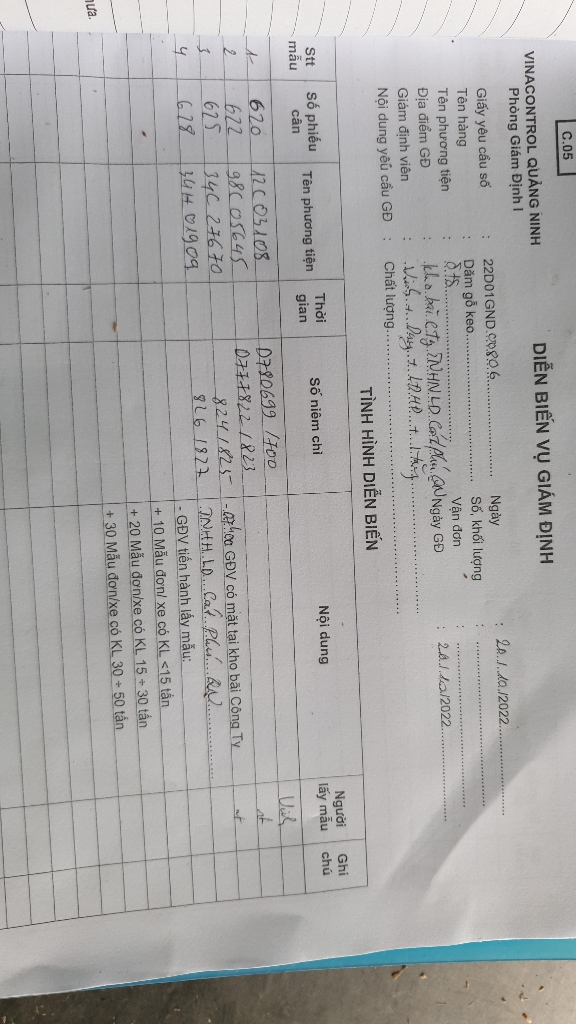 ưa.
C.05
VINACONTROL QUẢNG NINH
Phòng Giám Định I
DIỄN BIẾN VỤ GIÁM ĐỊNH
Giấy yêu cầu số : 22D01GND.00806 Ngày : 20/10/2022
Tên hàng : Dăm gỗ keo Số, khối lượng :
Tên phương tiện : Ô tô Vận đơn :
Địa điểm GĐ : kho bãi Cty TNHH LD Cát Phú QN Ngày GĐ : 20/10/2022
Giám định viên : Vinh + Duy + LĐHĐ +
Nội dung yêu cầu GĐ : Chất lượng
TÌNH HÌNH DIỄN BIẾN
Stt mẫu Số phiếu cân Tên phương tiện Thời gian Số niêm chì Nội dung Người lấy mẫu Ghi chú
1 620 12C03108 D780699/700
2 622 98C05645 D777822/823 - GĐV có mặt tại kho bãi Công Ty
3 625 34C27670 824/825 TNHH LD Cát Phú QN
4 628 34H01909 826/827 - GĐV tiến hành lấy mẫu:
+ 10 Mẫu đơn/ xe có KL <15 tấn
+ 20 Mẫu đơn/xe có KL 15 ÷ 30 tấn
+ 30 Mẫu đơn/xe có KL 30 ÷ 50 tấn